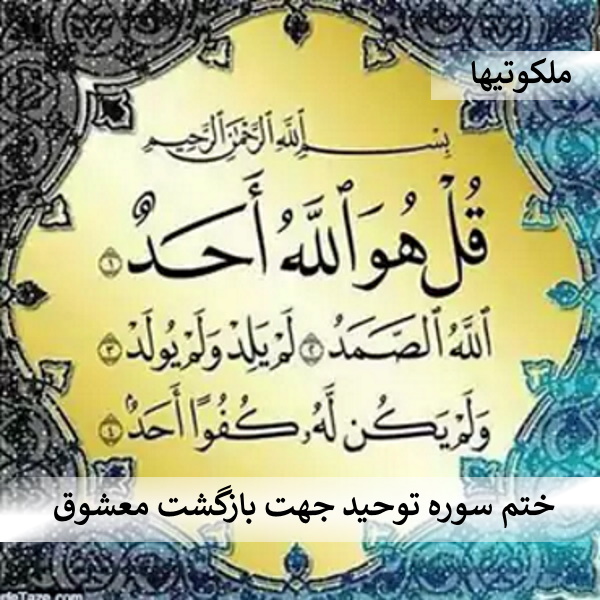 ملکوتیها
بِسْمِ ٱللَّهِ ٱلرَّحْمَٰنِ ٱلرَّحِيمِ
قُلْ هُوَ ٱللَّهُ أَحَدٌ ١
ٱللَّهُ ٱلصَّمَدُ ٢ لَمْ يَلِدْ وَلَمْ يُولَدْ ٣
وَلَمْ يَكُن لَّهُۥ كُفُوًا أَحَدٌۢ ٤
ختم سوره توحید جهت بازگشت معشوق
deTaze.com